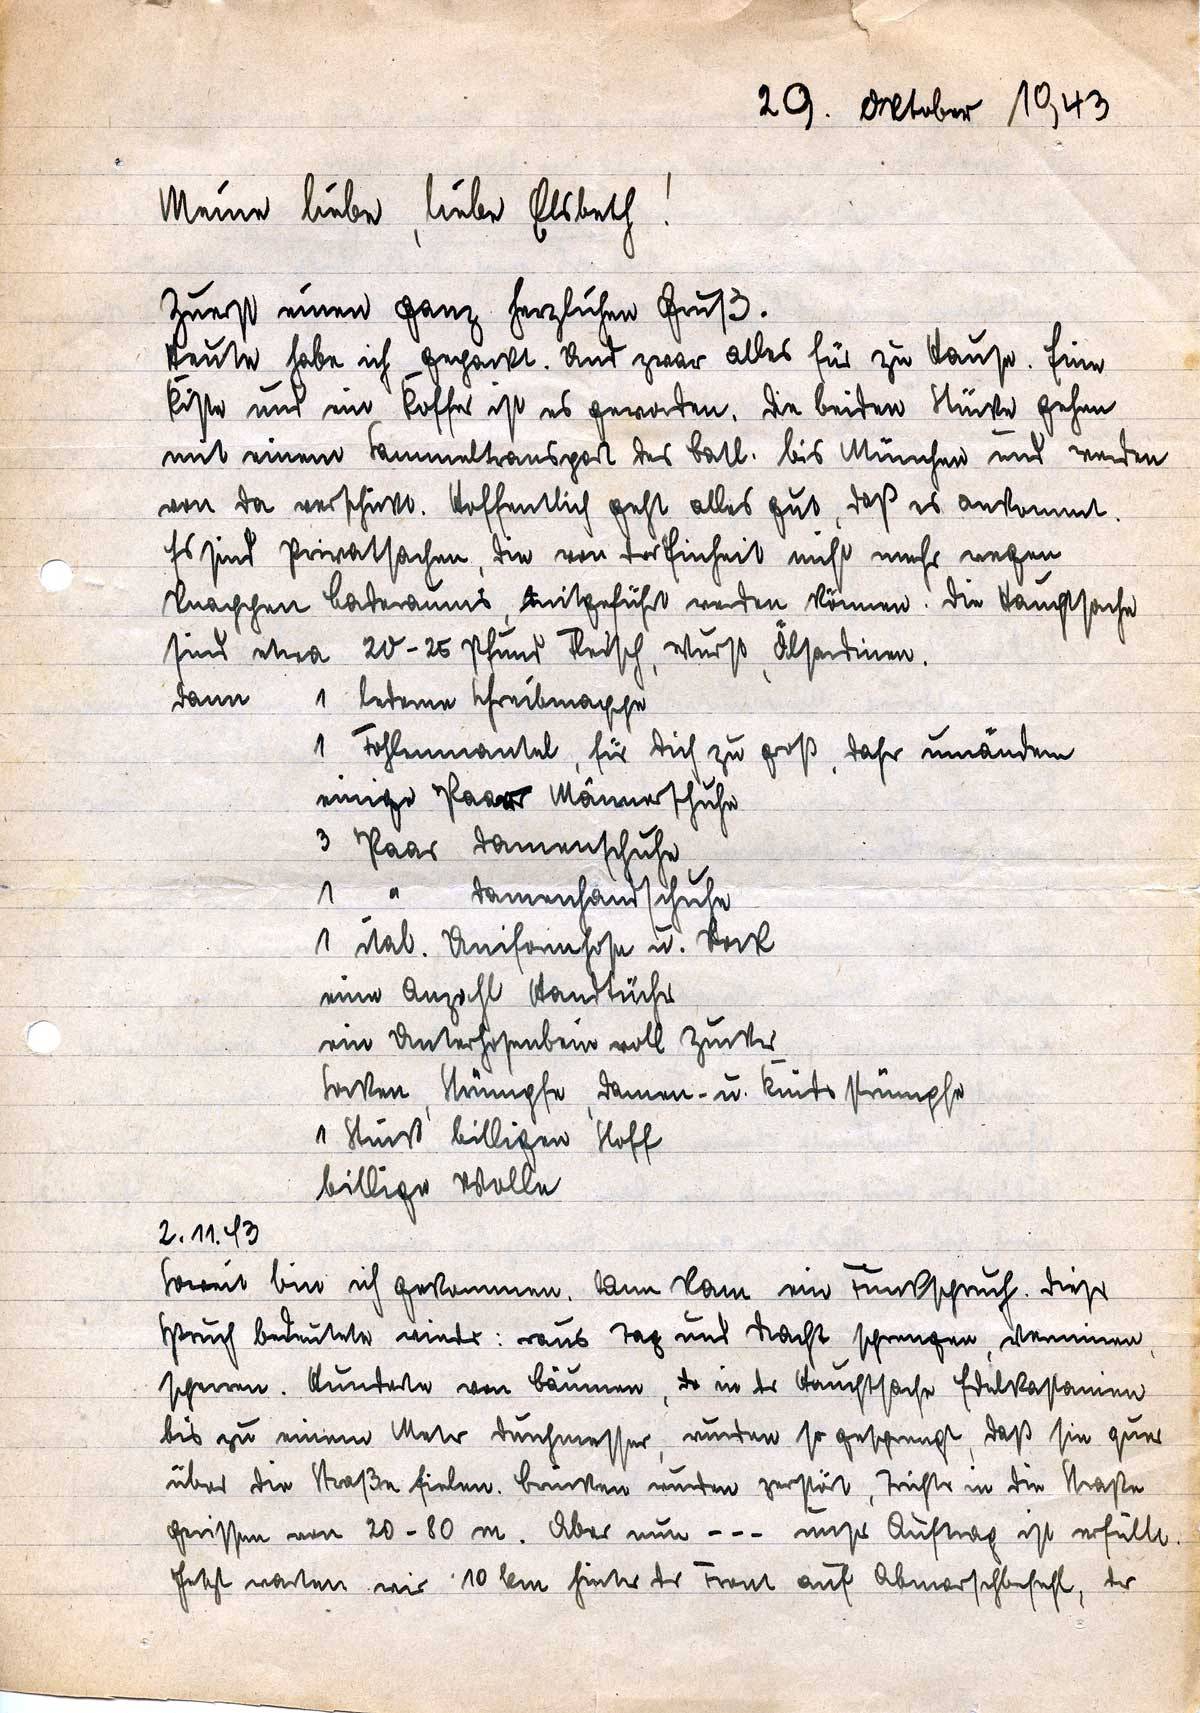 29. Oktober 1943
Meine liebe, liebe Elsbeth!
Zuerst einen ganz herzlichen Gruß.
Heute habe ich gepackt. Und zwar alles für zu Hause. Eine
Kiste und ein Koffer ist es geworden. Die beiden Stücke gehen
mit einem Sammeltransport des Batl. bis München und werden
von da verschickt. Hoffentlich geht alles gut, daß es ankommt.
Es sind Privatsachen, die von der Einheit nicht mehr wegen
knappen Laderaums mitgeführt werden können. Die Hauptsache
sind etwa 20-25 Pfund Fleisch, Wurst, Ölsardinen.
Dann 1 lederne Schreibmappe
1 Fohlenmantel, für Dich zu groß, daher umändern
einige Paar Männerschuhe
3 Paar Damenschuhe
1 " Damenhandschuhe
1 ital. Uniformhose u. Rock
eine Anzahl Handtücher
ein Unterhosenbein voll Zucker
Socken, Strümpfe, Damen- u. Kinderstrümpfe
1 Stück billigen Stoff
billige Wolle
2.11.43
Soweit bin ich gekommen. Dann kam ein Funkspruch. Dieser
Spruch bedeutete wieder: raus Tag und Nacht sprengen, verminen,
sperren. Hunderte von Bäumen, da in der Hauptsache Edelkastanien
bis zu einem Meter Durchmesser, wurden so gesprengt, daß sie quer
über die Straße fielen. Brücken wurden zerstört, Trichter in die Straße
gerissen von 20-80 m. Aber nun --- unser Auftrag ist erfüllt.
Jetzt warten wir 10 km hinter der Front auf Abmarschbefehl, der